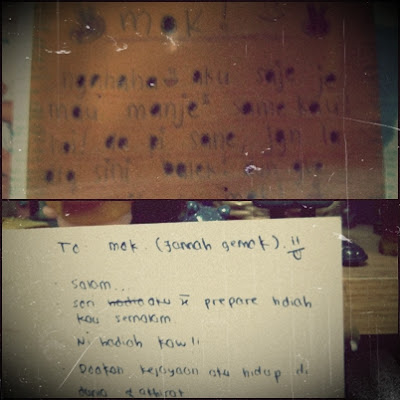 mok!
ngahaha aku saje je
mau manje² same kau
la! de pi sane, lgn la
sini
To mok (Jannah gemok).
salam...
sori hadia aku x prepare hdiah
kau semalam
Ni hadiah kaw!!
Doakan kejayaan aku hidup di
dunia & akhirat